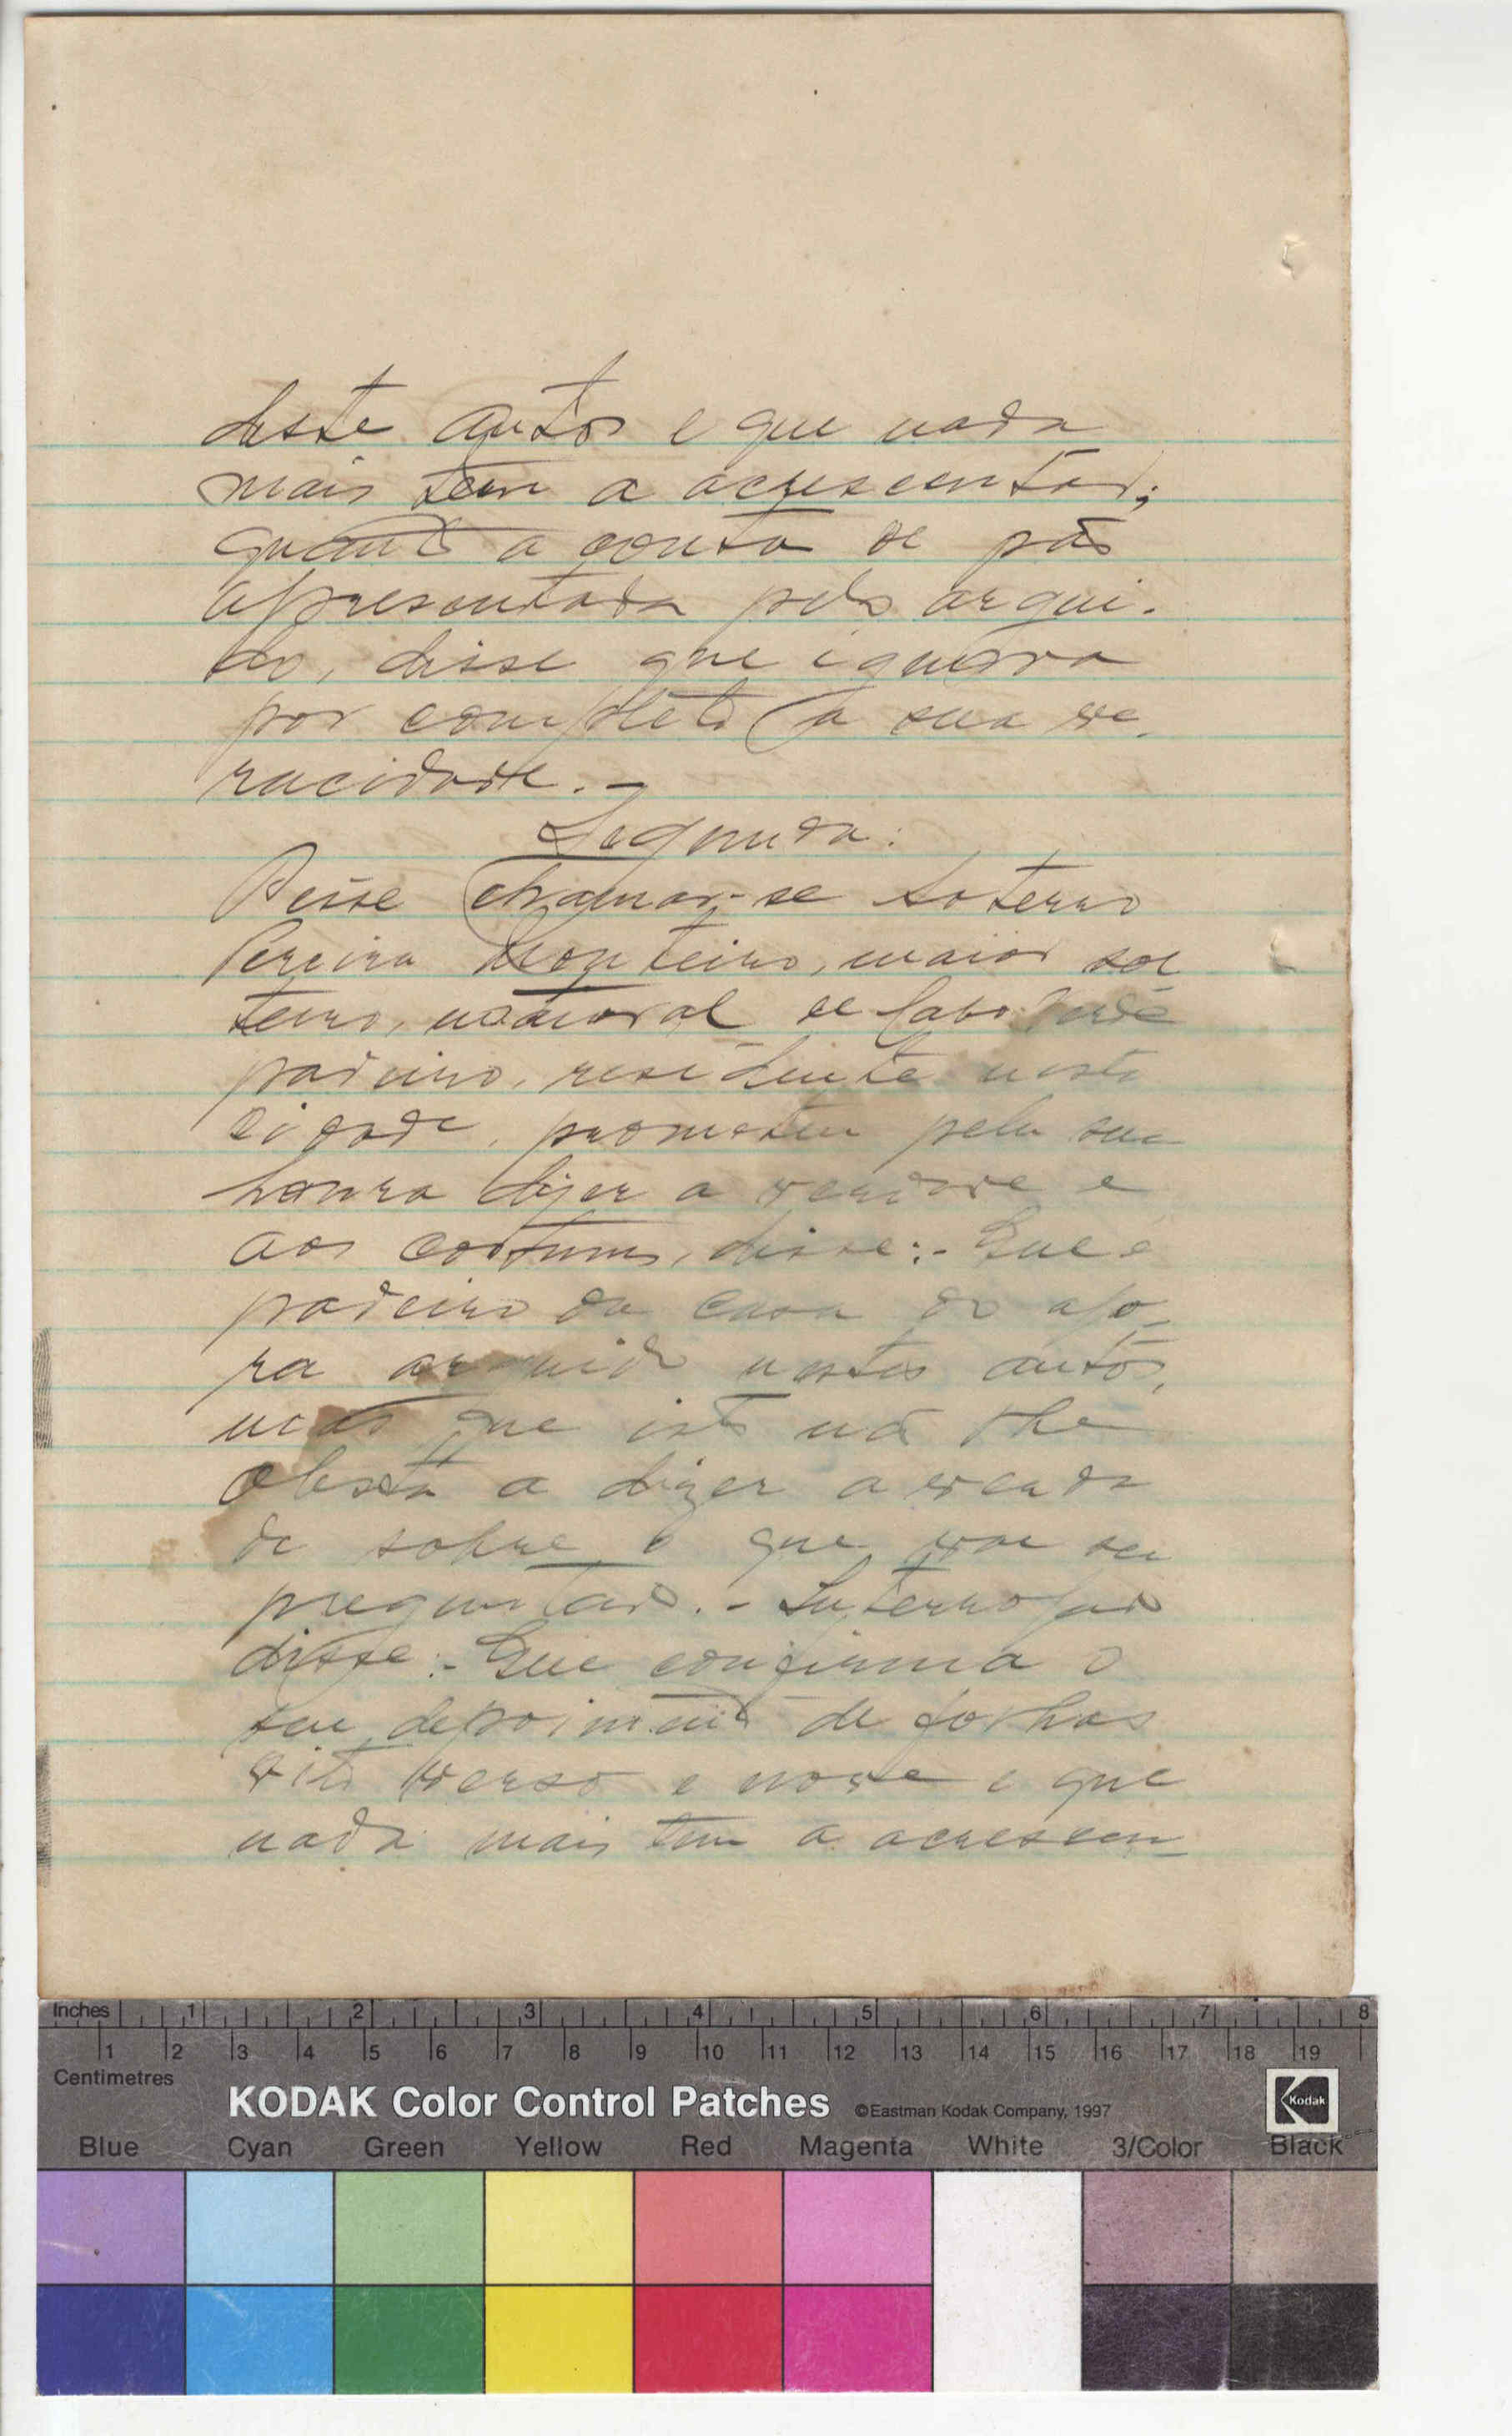 deste autos e que nada
mais tem a acrescentar;
quanto a conta de pão
apresentada pelo argui-
do, disse que ignora
por completo a sua ve-
racidade. -
Segunda:
Disse chamar-se Soterno
Pereira Monteiro, maior sol
teiro, natural de Cabo Verde
padeiro, residente nesta
cidade, prometeu pela sua
honra dizer a verdade e
aos costumes, disse:- Que é
padeiro da casa do ago-
ra arguido nestes autos,
mas que isto não lhe
obsta a dizer a verda
de sobre o que vae ser
preguntado. - Interrogado
disse:- Que confirma o
seu depoimento de folhas
oito verso e nove e que
nada mais tem a acrescen-
Inches 1 2 3 4 5 6 7 8
1 2 3 4 5 6 7 8 9 10 11 12 13 14 15 16 17 18 19
Centimetres
KODAK Color Control Patches ©Eastman Kodak Company, 1997 Kodak
Blue Cyan Green Yellow Red Magenta White 3/Color Black